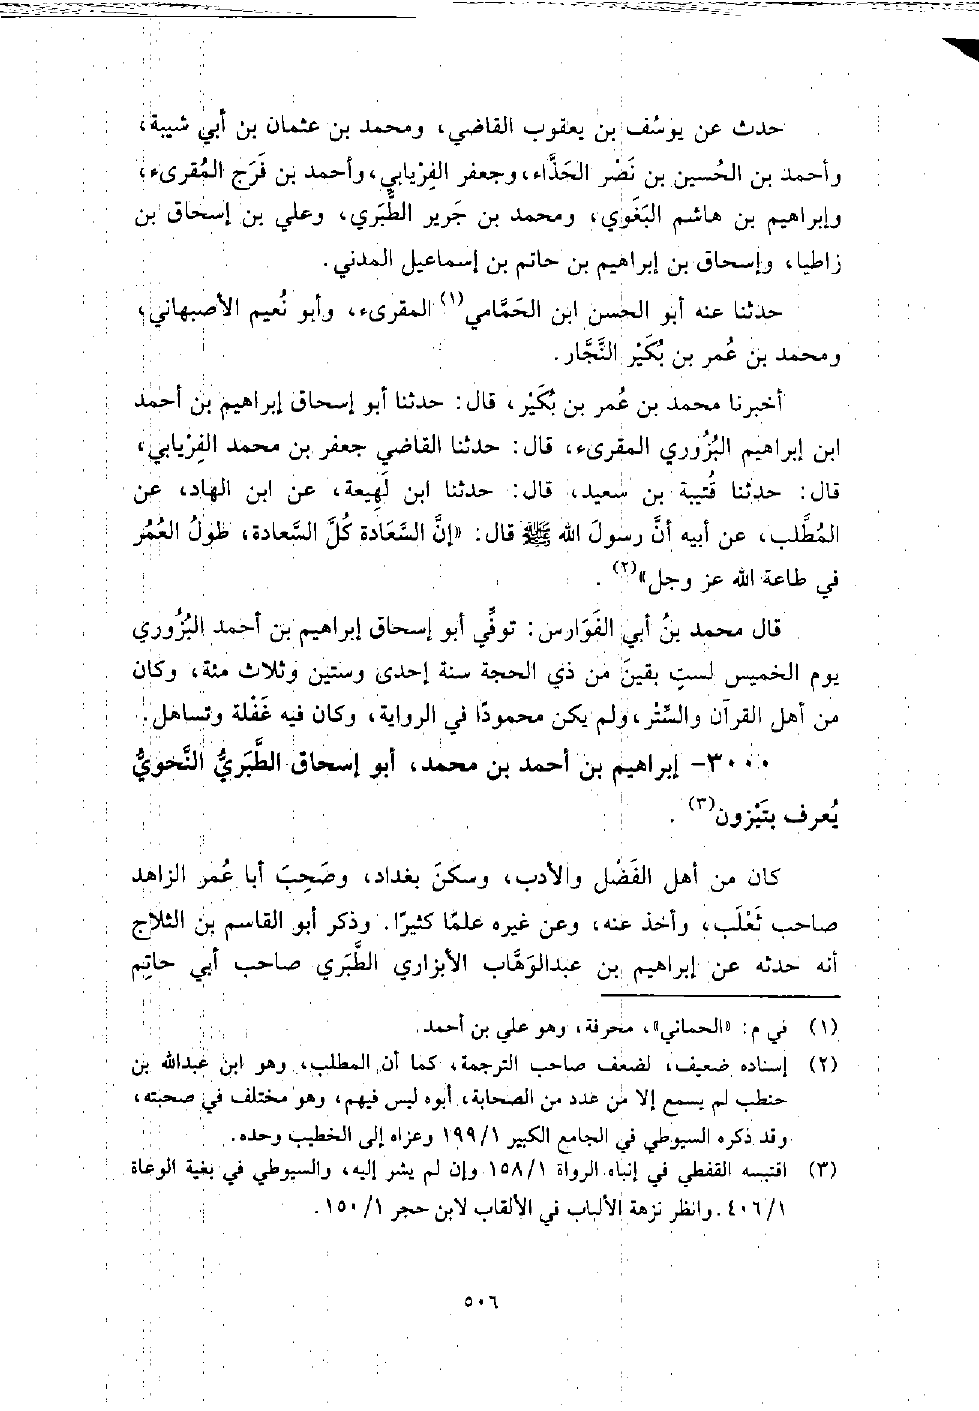 حدث عن يوسُف بن يعقوب القاضي، ومحمد بن عثمان بن أبي شيبة،
وأحمد بن الحُسين بن نَصْر الحَذَّاء، وجعفر الفِرْيابي، وأحمد بن فَرَج المُقرىء،
وإبراهيم بن هاشم البَغَوي، ومحمد بن جَرير الطَّبَري، وعلي بن إسحاق بن
زاطيا، وإسحاق بن إبراهيم بن حاتم بن إسماعيل المدني.
حدثنا عنه أبو الحسن ابن الحَمَّامي(١) المقرىء، وأبو نُعيم الأصبهاني،
ومحمد بن عُمر بن بُكَيْر النَّجَّار.
أخبرنا محمد بن عُمر بن بُكَيْر، قال: حدثنا أبو إسحاق إبراهيم بن أحمد
ابن إبراهيم البُزُوري المقرىء، قال: حدثنا القاضي جعفر بن محمد الفِرْيابي،
قال: حدثنا قُتيبة بن سعيد، قال: حدثنا ابن لَهِيعة، عن ابن الهاد، عن
المُطَّلب، عن أبيه أنَّ رسولَ الله ﷺ قال: «إنَّ السَّعَادة كُلَّ السَّعادة، طولُ العُمُر
في طاعة الله عز وجل»(٢) .
قال محمد بنُ أبي الفَوَارس: توفِّي أبو إسحاق إبراهيم بن أحمد البُزُوري
يوم الخميس لستٍ بقينَ من ذي الحجة سنة إحدى وستين وثلاث مئة، وكان
من أهل القرآن والسِّتْر، ولم يكن محمودًا في الرواية، وكان فيه غَفْلة وتساهل.
٣٠٠٠- إبراهيم بن أحمد بن محمد، أبو إسحاق الطَّبَريُّ النَّحْويُّ
يُعرف بتَيْزون(٣) .
كان من أهل الفَضْل والأدب، وسكنَ بغداد، وصَحِبَ أبا عُمر الزاهد
صاحب ثَعْلَب، وأخذ عنه، وعن غيره علمًا كثيرًا. وذكر أبو القاسم بن الثلاج
أنه حدثه عن إبراهيم بن عبدالوَهَّاب الأبزاري الطَّبَري صاحب أبي حاتِم
(١) في م: «الحماني»، محرفة، وهو علي بن أحمد.
(٢) إسناده ضعيف، لضعف صاحب الترجمة، كما أن المطلب، وهو ابن عبدالله بن
حنطب لم يسمع إلا من عدد من الصحابة، أبوه ليس فيهم، وهو مختلف في صحبته،
وقد ذكره السيوطي في الجامع الكبير ١/ ١٩٩ وعزاه إلى الخطيب وحده.
(٣) اقتبسه القفطي في إنباه الرواة ١/ ١٥٨ وإن لم يشر إليه، والسيوطي في بغية الوعاة
١/ ٤٠٦. وانظر نزهة الألباب في الألقاب لابن حجر ١/ ١٥٠.
٥٠٦